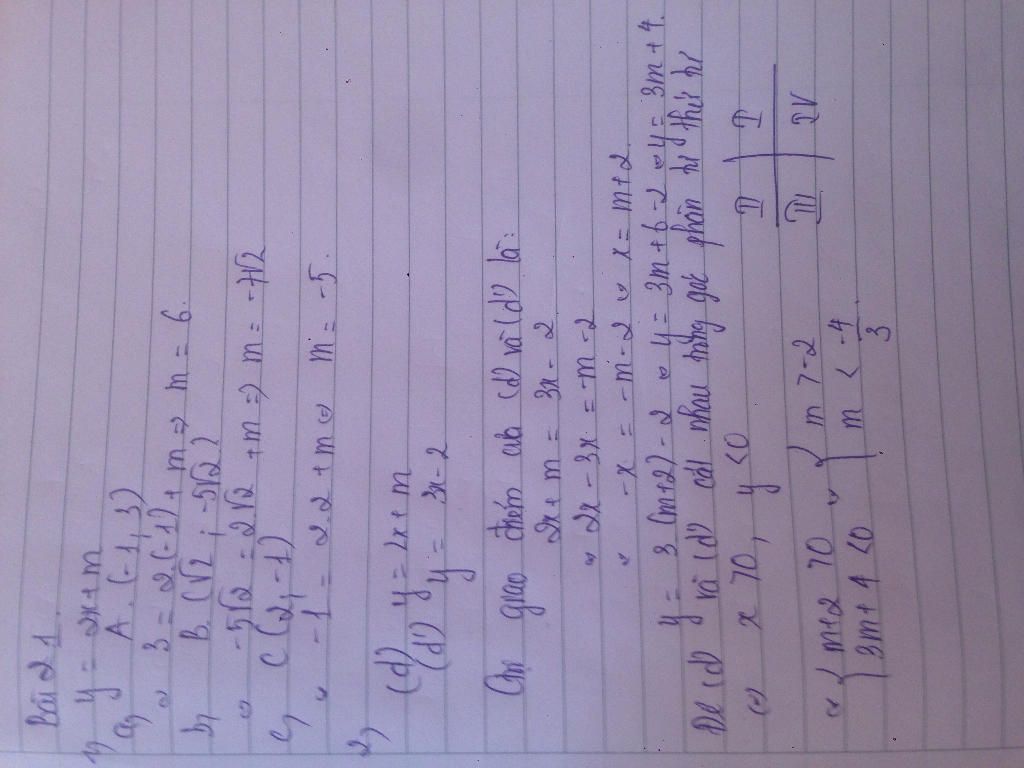 Bài 21
1) y = 2x + m
a) A. (-1, 3)
⇔ 3 = 2(-1) + m ⇒ m = 6.
b) B. (√2 ; -5√2)
⇔ -5√2 = 2√2 + m ⇒ m = -7√2
c) C (2, -1)
⇔ -1 = 2.2 + m ⇔ m = -5.
2) (d) y = 2x + m
(d') y = 3x - 2
giao điểm của (d) và (d') là:
2x + m = 3x - 2
⇔ 2x - 3x = -m - 2
⇔ -x = -m - 2 ⇔ x = m + 2
y = 3 (m+2) - 2 ⇔ y = 3m + 6 - 2 ⇔ y = 3m + 4.
Để (d) và (d') cắt nhau trong góc phần tư thứ tư
⇔ x > 0, y < 0
II I
III IV
⇔ { m+2 > 0 ⇔ { m > -2
3m + 4 < 0 m < -4/3